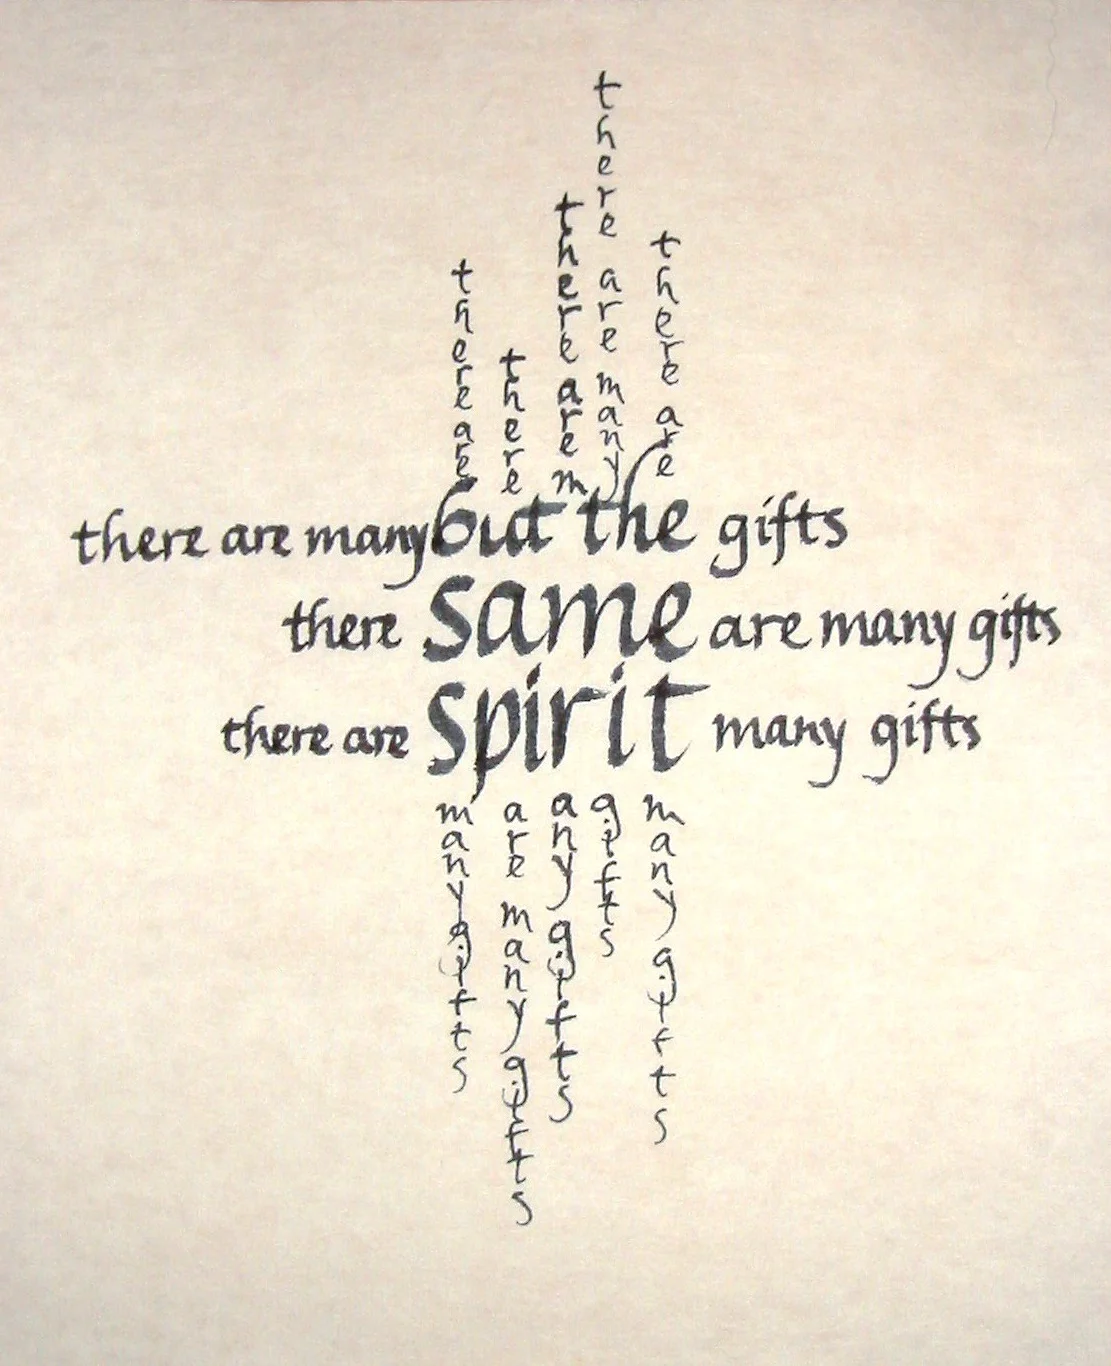 there are
there
there are m
there are many
there are
there are many but the gifts
there same are many gifts
there are spirit many gifts
many gifts
are many gifts
any gifts
gifts
many gifts